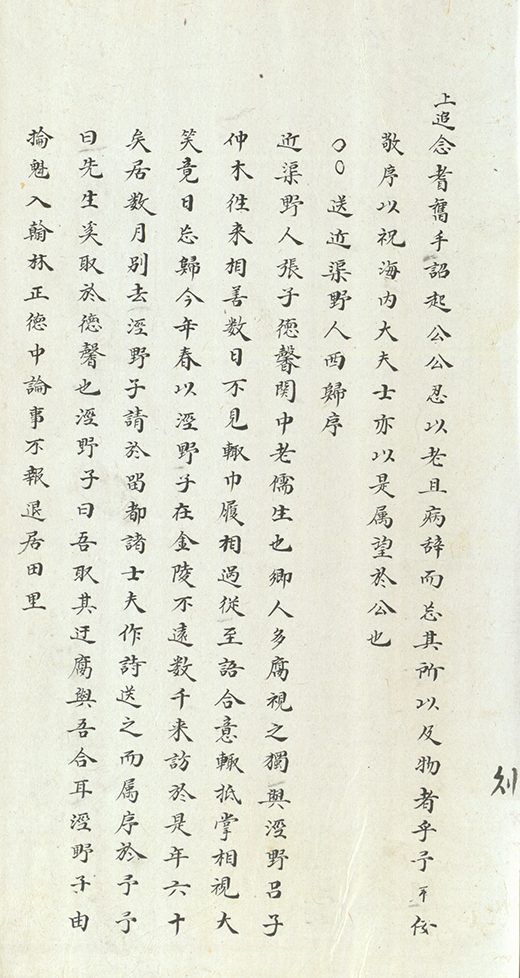 上追念耆舊手詔起公公忍以老且病辞而忘其所以及物者乎予
敬序以祝海内大夫士亦以是属望於公也
〇〇送近渠野人西歸序
近渠野人張子徳馨関中老儒生也鄉人多腐視之獨與涇野呂子
仲木徃来相善數日不見輙巾履相過從至語合意輙抵掌相視大
笑竟日忘歸今年春以涇野子在金陵不遠数千来訪於是年六十
矣居数月別去涇野子請於畱都諸士夫作詩送之而属序於予予
曰先生奚取於徳馨也涇野子曰吾取其迂腐與吾合耳涇野子由
掄魁入翰林正徳中論事不報退居田里